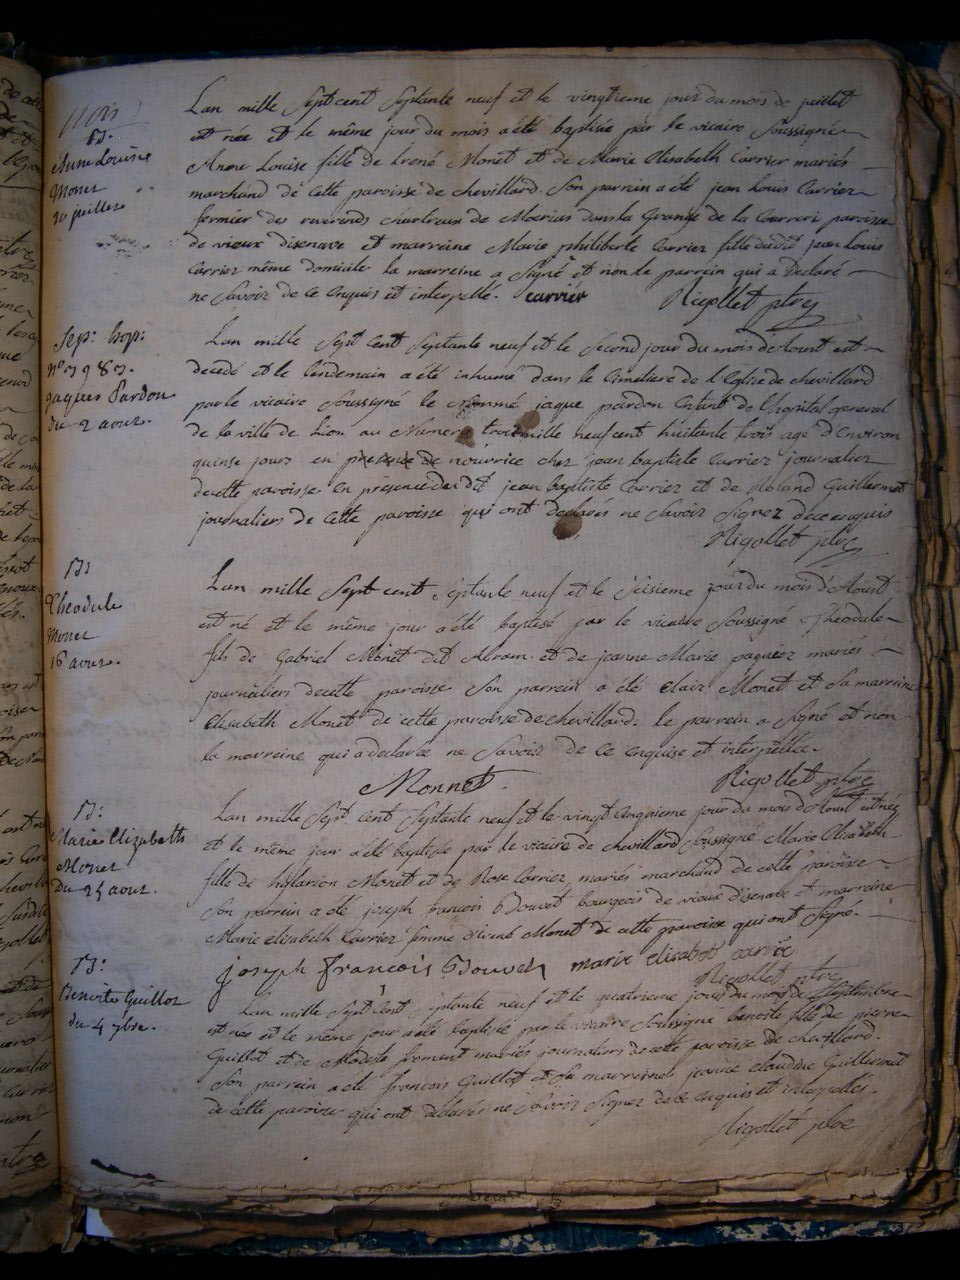 trois
B:
Anne Louise
Monet
20 juillet
Lan mille Sept cent Septante neuf et le vingtieme jour du mois de juillet
est née et le même jour du mois a été baptisée par le vicaire Soussigné
Anne Louise fille de hrené Monet et de Marie Elisabeth Carrier mariés
marchand de cette paroisse de chevillard. Son parrain a été jean Louis Carrier
fermier des reverends chartreux de Meerias dans la Grange de la Correri paroisse
de vieux disenave et marreine Marie philiberte Carrier fille dudit jean Louis
Carrier même domicile la marreine a Signé et non le parrein qui a Declaré
ne Savoir de ce enquis et interpellé. carrier Rigollet ptre
Sep: hop:
n° 3983.
jaques Pardon
du 2 aout.
Lan mille Sept Cent Septante neuf et le Second jour du mois de Aoust est
decedé et le lendemain a été inhumé dans le Cimetiere de l'Eglise de chevillard
par le vicaire Soussigné le Nommé jaque pardon Enfant de l'hopital general
de la ville de Lion au Numero trois mille neuf cent huitante trois agé d'Environ
quinse jours en nourrice chez jean baptiste Carrier journalier
de cette paroisse. En présence du dit jean baptiste Carrier et de Roland Guillermet
journaliers de Cette paroisse qui ont declarés ne Savoir Signer de ce enquis
Rigollet ptre
B:
Theodule
Monet
16 aout.
Lan mille Sept cent Septante neuf et le Seisieme jour du mois d'Aoust
est né et le même jour a été baptisé par le vicaire Soussigné Theodule
fils de Gabriel Monet dit Abram et de jeanne Marie paquez mariés
journaliers de cette paroisse Son parrein a été Clair Monet et Sa marreine
Elisabeth Monet de cette paroisse de chevillard. le parrein a Signé et non
la marreine qui a declarée ne Savoir de Ce enquise et interpellée.
Monnet. Rigollet ptre
B:
Marie Elizabeth
Monet
du 25 aout.
Lan mille Sept cent Septante neuf et le vingt Cinquieme jour du mois d'Aout est née
et le même jour a été baptisée par le vicaire de chevillard Soussigné Marie Elizabeth
fille de hilarion Monet et de Rose Carrier mariés marchand de cette paroisse
Son parrein a été joseph francois Bouvet bourgeois de vieux disenave et marreine
Marie elizabeth Carrier femme d'irené Monet de cette paroisse qui ont Signé.
joseph francois Bouvet marie elizabet carrie
Rigollet ptre
B:
Benoite Guillot
du 4 7bre.
Lan mille Sept Cent Septante neuf et le quatrieme jour du mois de Septembre
est née et le même jour a été baptisée par le vicaire Soussigné benoite fille de pierre
Guillot et de Modeste froment mariés journaliers de cette paroisse de chevillard.
Son parrein a été francois Guillot et Sa marreine jeanne claudine Guillermet
de cette paroisse qui ont declarés ne Savoir Signer de ce enquis et interpellés.
Rigollet ptre